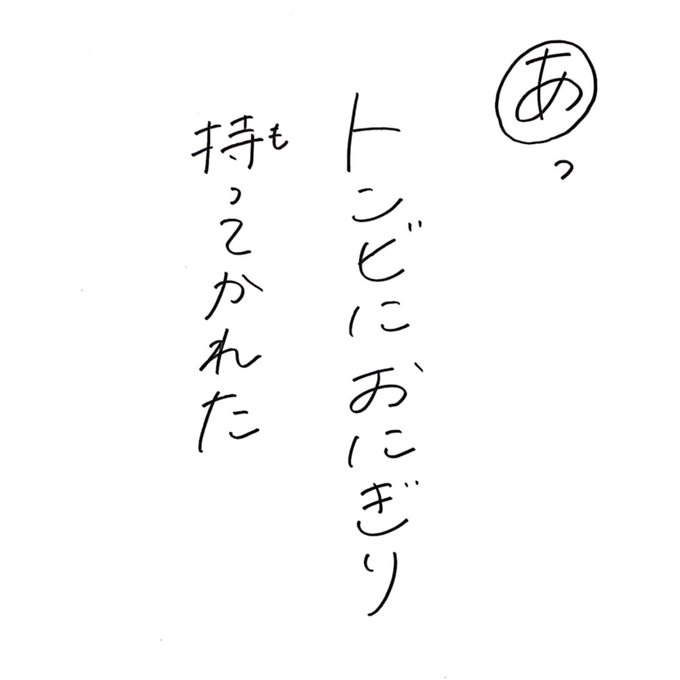 あっ
トンビにおにぎり
持ってかれた
も